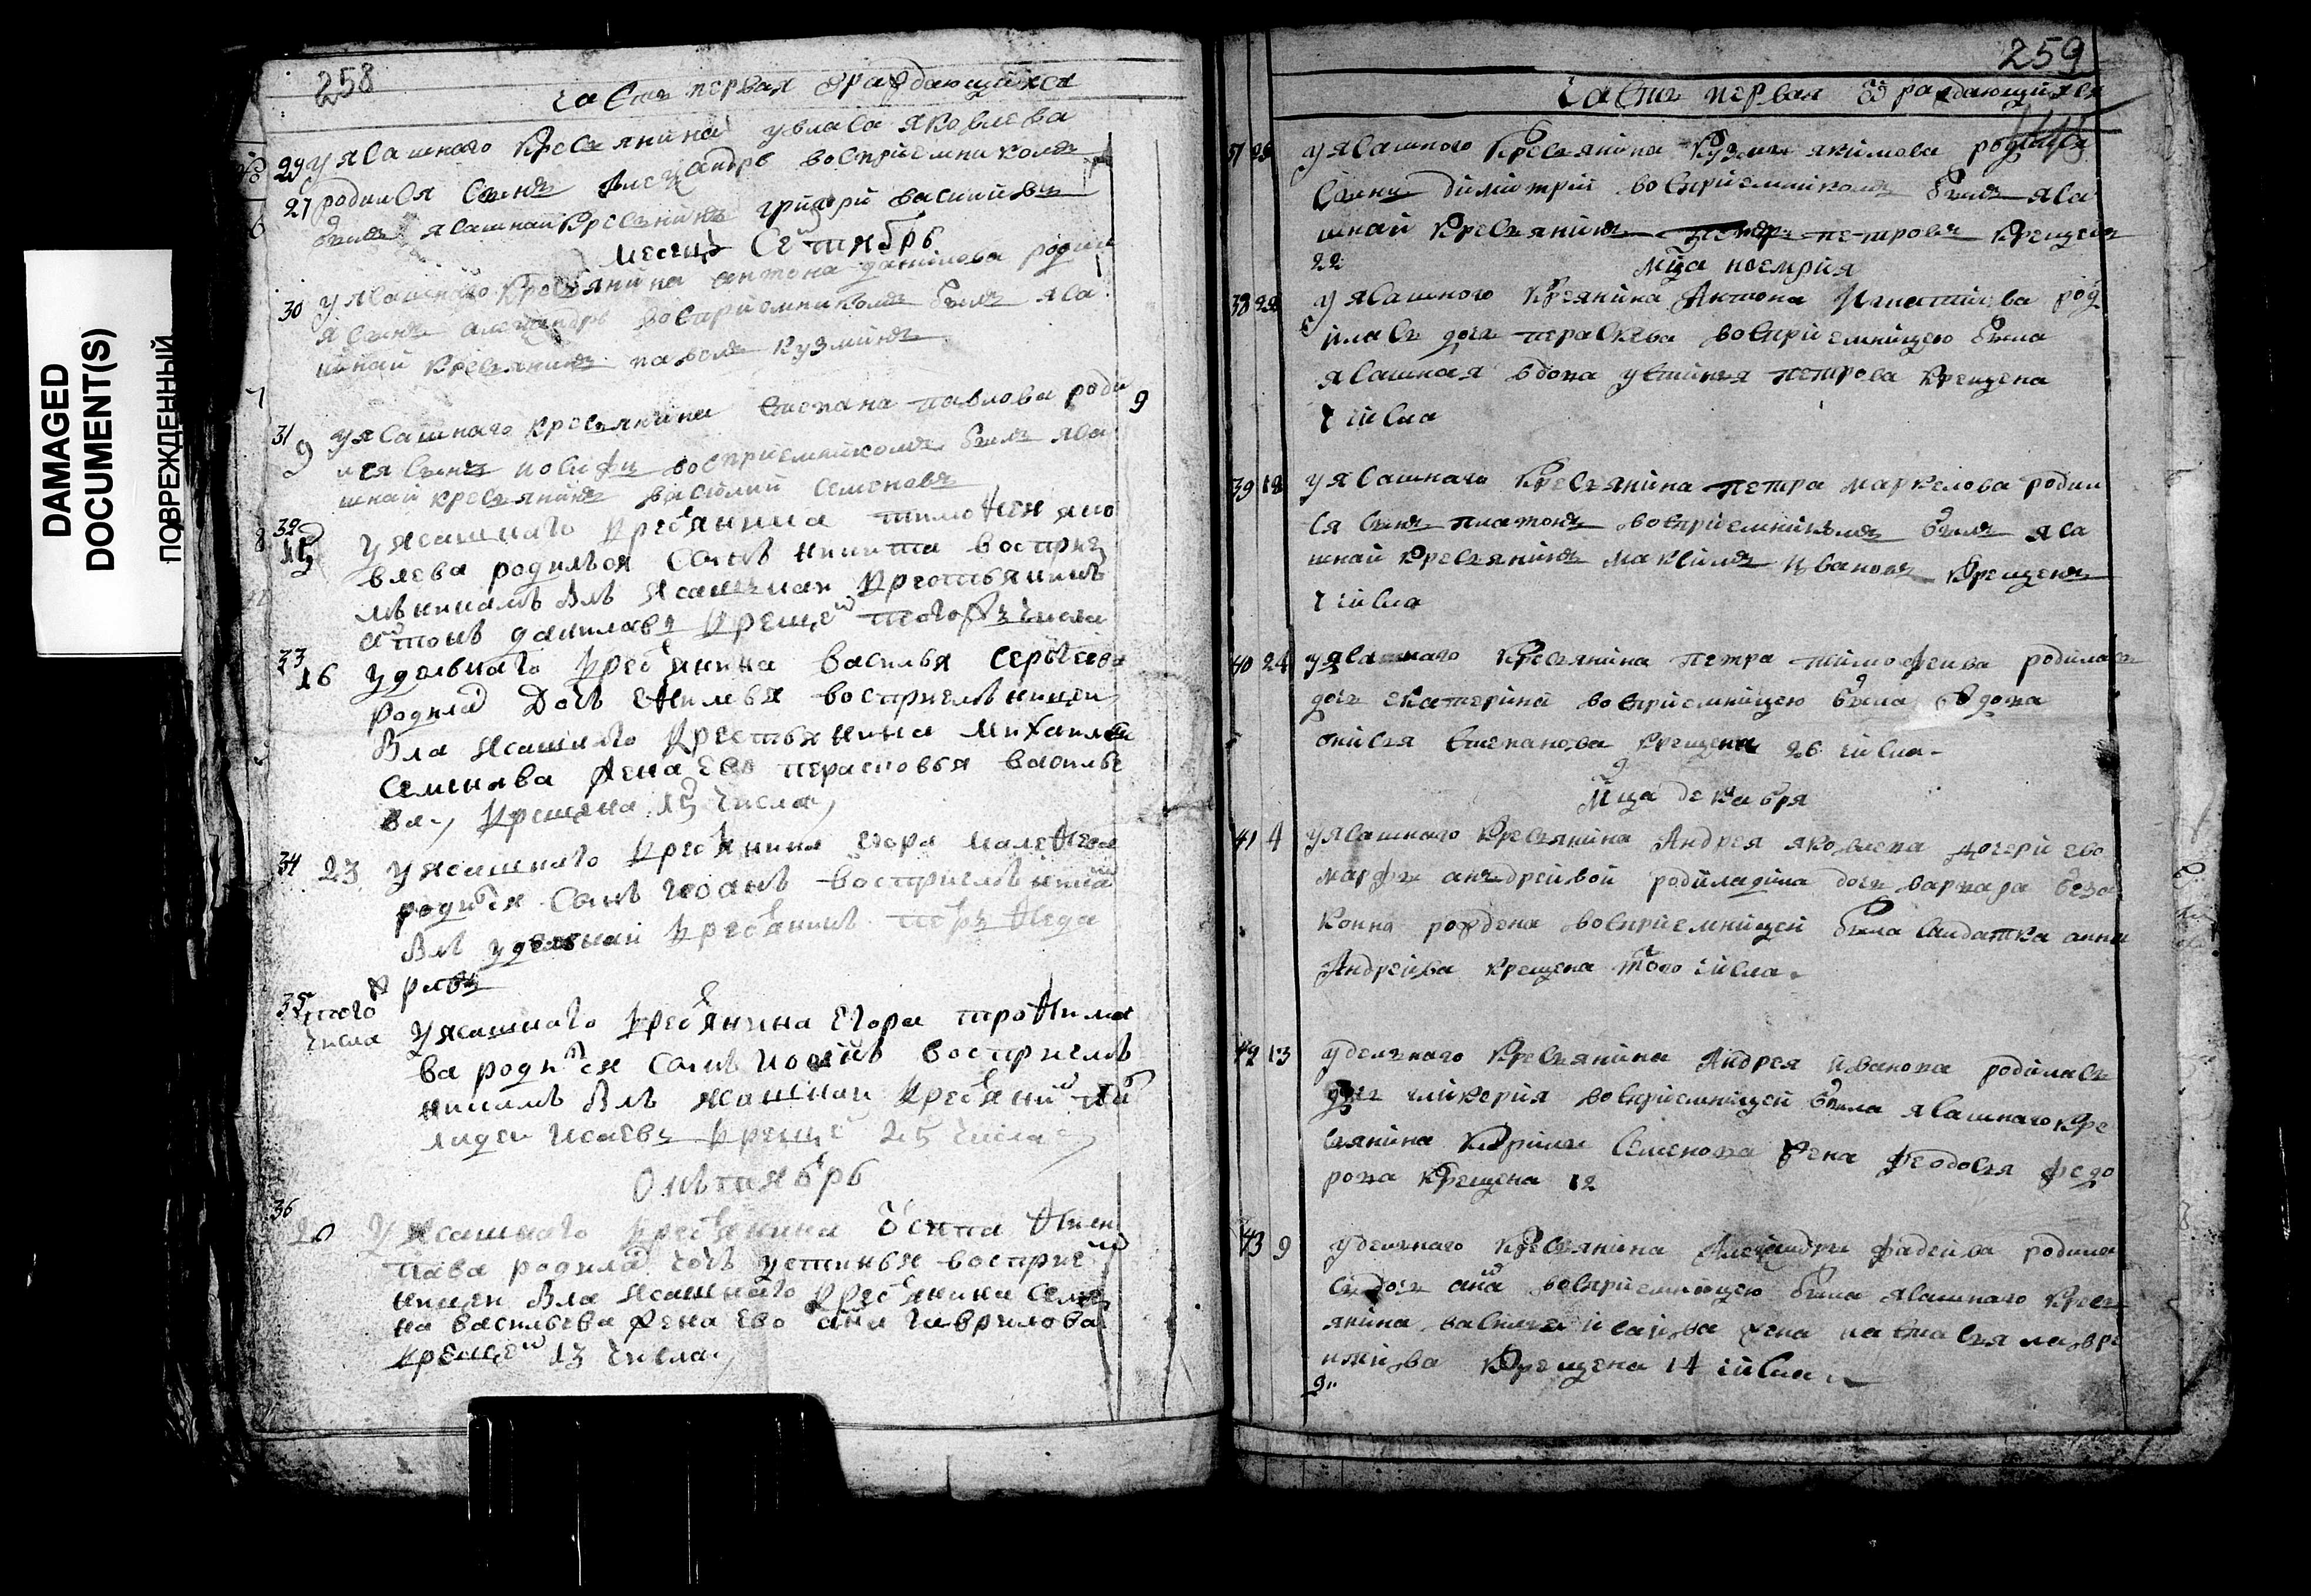 DAMAGED
DOCUMENT(S)
ПОВРЕЖДЕННЫЙ
258
часть первая о раждающихся
29 у ясашнаго крестьянина у власа яковлева
27 родился сынъ александръ восприемникомъ
былъ ясашнай крестьянинъ григорй василиевъ
месяцъ сентябрь
30 у ясашнаго крестьянина антона данилова родил
я сынъ александръ восприемникомъ былъ яса
шнай крестьянинъ павелъ кузминъ
31 у ясашнаго крестьянина степана павлова роди
9 лся сынъ иосифъ восприемникомъ былъ яса
9
шнай крестьянинъ василий семеновъ
32 у ясашнаго крестьянина тимофея яко
15 влева родился сынъ никита восприе
мникамъ былъ ясашнаи крестьянинъ
антонъ данилавъ крещен тогожъ числа
33
16 удельнаго крестьянина василья сергеева
родилас дочь ефимья восприемницеи
была ясашнаго крестьянина михаила
семинава жена ево перасковья василье
ва, крещена 15 числа,
34 23 у ясашнаго крестьянина егора малефеева
родился сынъ иоанъ восприемникам
былъ удельнай крестьянинъ петръ феда
ровъ
35 того
числа у ясашнаго крестьянина егора трофима
ва родился сынъ иосифъ восприемъ
никамъ былъ ясашнаи крестьянин
лидеи исаевъ крещен 25 числа
октябрь
36
у ясашнаго крестьянина осипа фили
пава родилас дочь устинья восприем
ницеи была ясашнаго крестьянина семе
на васильева жена ево анна гаврилова
крещен 13 числа,
259
часть первая о раждающихся
37 у ясашного крестьянина кузмы якимова родился
сынъ димитрий восприемникомъ былъ яса
шнай крестьянинъ петровъ крещенъ
22
мца ноемрия
38 22 у ясашного крестянина антона игнатиева род
илась дочь параскева восприемницею была
ясашная вдова устинья петрова крещена
числа
39 18 у ясашнаго крестьянина петра маркелова родил
ся сынъ платонъ восприемникомъ былъ яса
шнай крестьянинъ максимъ ивановъ крещенъ
числа
40 24 у ясашнаго крестьянина петра тимофеива родилась
дочь екатерина восприемницею была вдова
онисья степанова крещена 26 числа
мца декабря
41 4 у ясашнаго крестьянина андрея яковлева дочери ево
марфы андреивой родиладина дочь варвара безза
конна рождена восприемницей была салдатка анна
андреива крещена того числа
42 13 удельнаго крестьянина андрея иванова родилась
дочь гликерия восприемницей была ясашнаго кре
стьянина кирилы семенова жена феодосья федо
рова крещена 12
43 9 удельнаго крестьянина александры фадеива родила
сь дочь анна восприемницею была ясашнаго кресть
янина василья исаива жена настасья лавре
нтиива крещена 14 числа